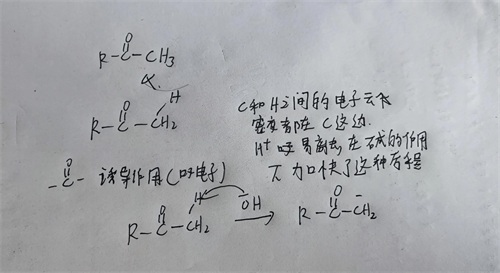 O
R-C-CH3
α
H
O
R-C-CH2
C和H之间的电子云
密度都在C这边.
H+ 易离去 在碱的作用
下 加快了这种历程
O
-C- 诱导作用(吸电子)
H
O
R-C-CH2
OH
O
R-C-CH2